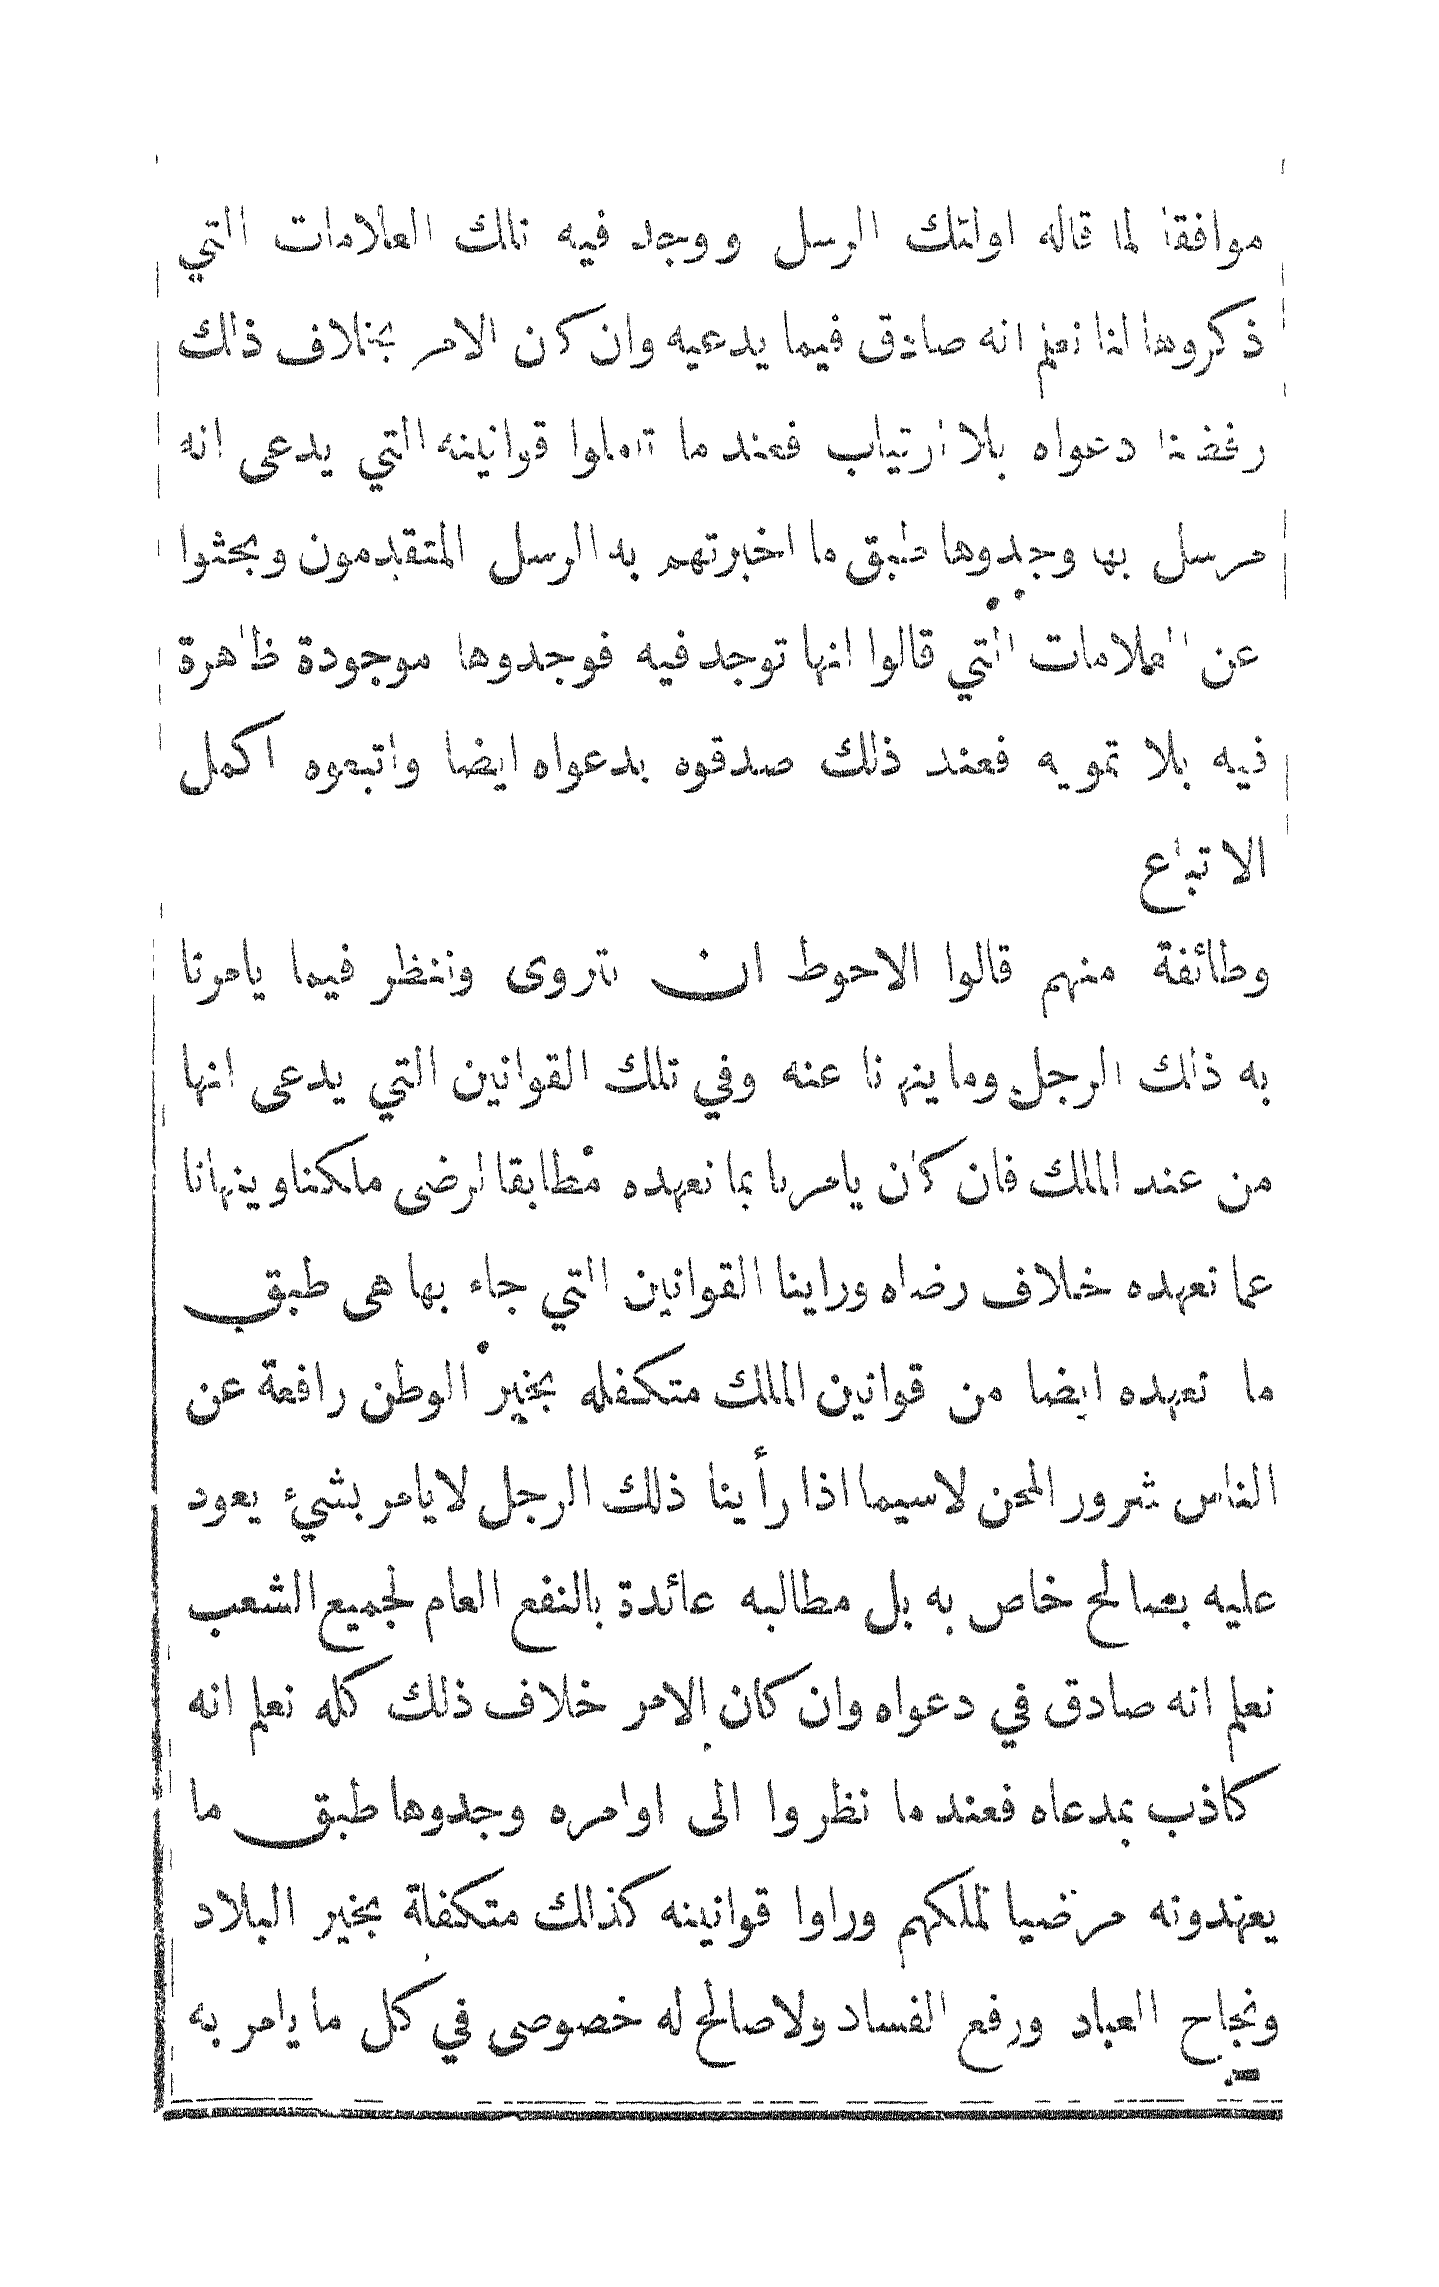 موافقا لما قاله اولئك الرسل ووجد فيه تلك العلامات التي
ذكروها لنا نعلم انه صادق فيما يدعيه وان كان الامر بخلاف ذلك
رفضنا دعواه بلا ارتياب فعند ما تاملوا قوانينه التي يدعى انه
مرسل بها وجدوها طبق ما اخبرتهم به الرسل المتقدمون وبحثوا
عن العلامات التي قالوا انها توجد فيه فوجدوها موجودة ظاهرة
فيه بلا تمويه فعند ذلك صدقوه بدعواه ايضا واتبعوه اكمل
الاتباع
وطائفة منهم قالوا الاحوط ان نتروى وننظر فيما يامرنا
به ذلك الرجل وما ينهانا عنه وفي تلك القوانين التي يدعى انها
من عند الملك فان كان يامرنا بما نعهده مطابقا لرضى ملكنا وينهانا
عما نعهده خلاف رضاه وراينا القوانين التي جاء بها هى طبق
ما نعهده ايضا من قوانين الملك متكفله بخير الوطن رافعة عن
الناس شرور المحن لاسيما اذا رأينا ذلك الرجل لا يامر بشيء يعود
عليه بصالح خاص به بل مطالبه عائدة بالنفع العام لجميع الشعب
نعلم انه صادق في دعواه وان كان الامر خلاف ذلك كله نعلم انه
كاذب بمدعاه فعند ما نظروا الى اوامره وجدوها طبق ما
يعهدونه مرضيا لملكهم وراوا قوانينه كذلك متكفلة بخير البلاد
ونجاح العباد ورفع الفساد ولا صالح له خصوصى في كل ما يامر به